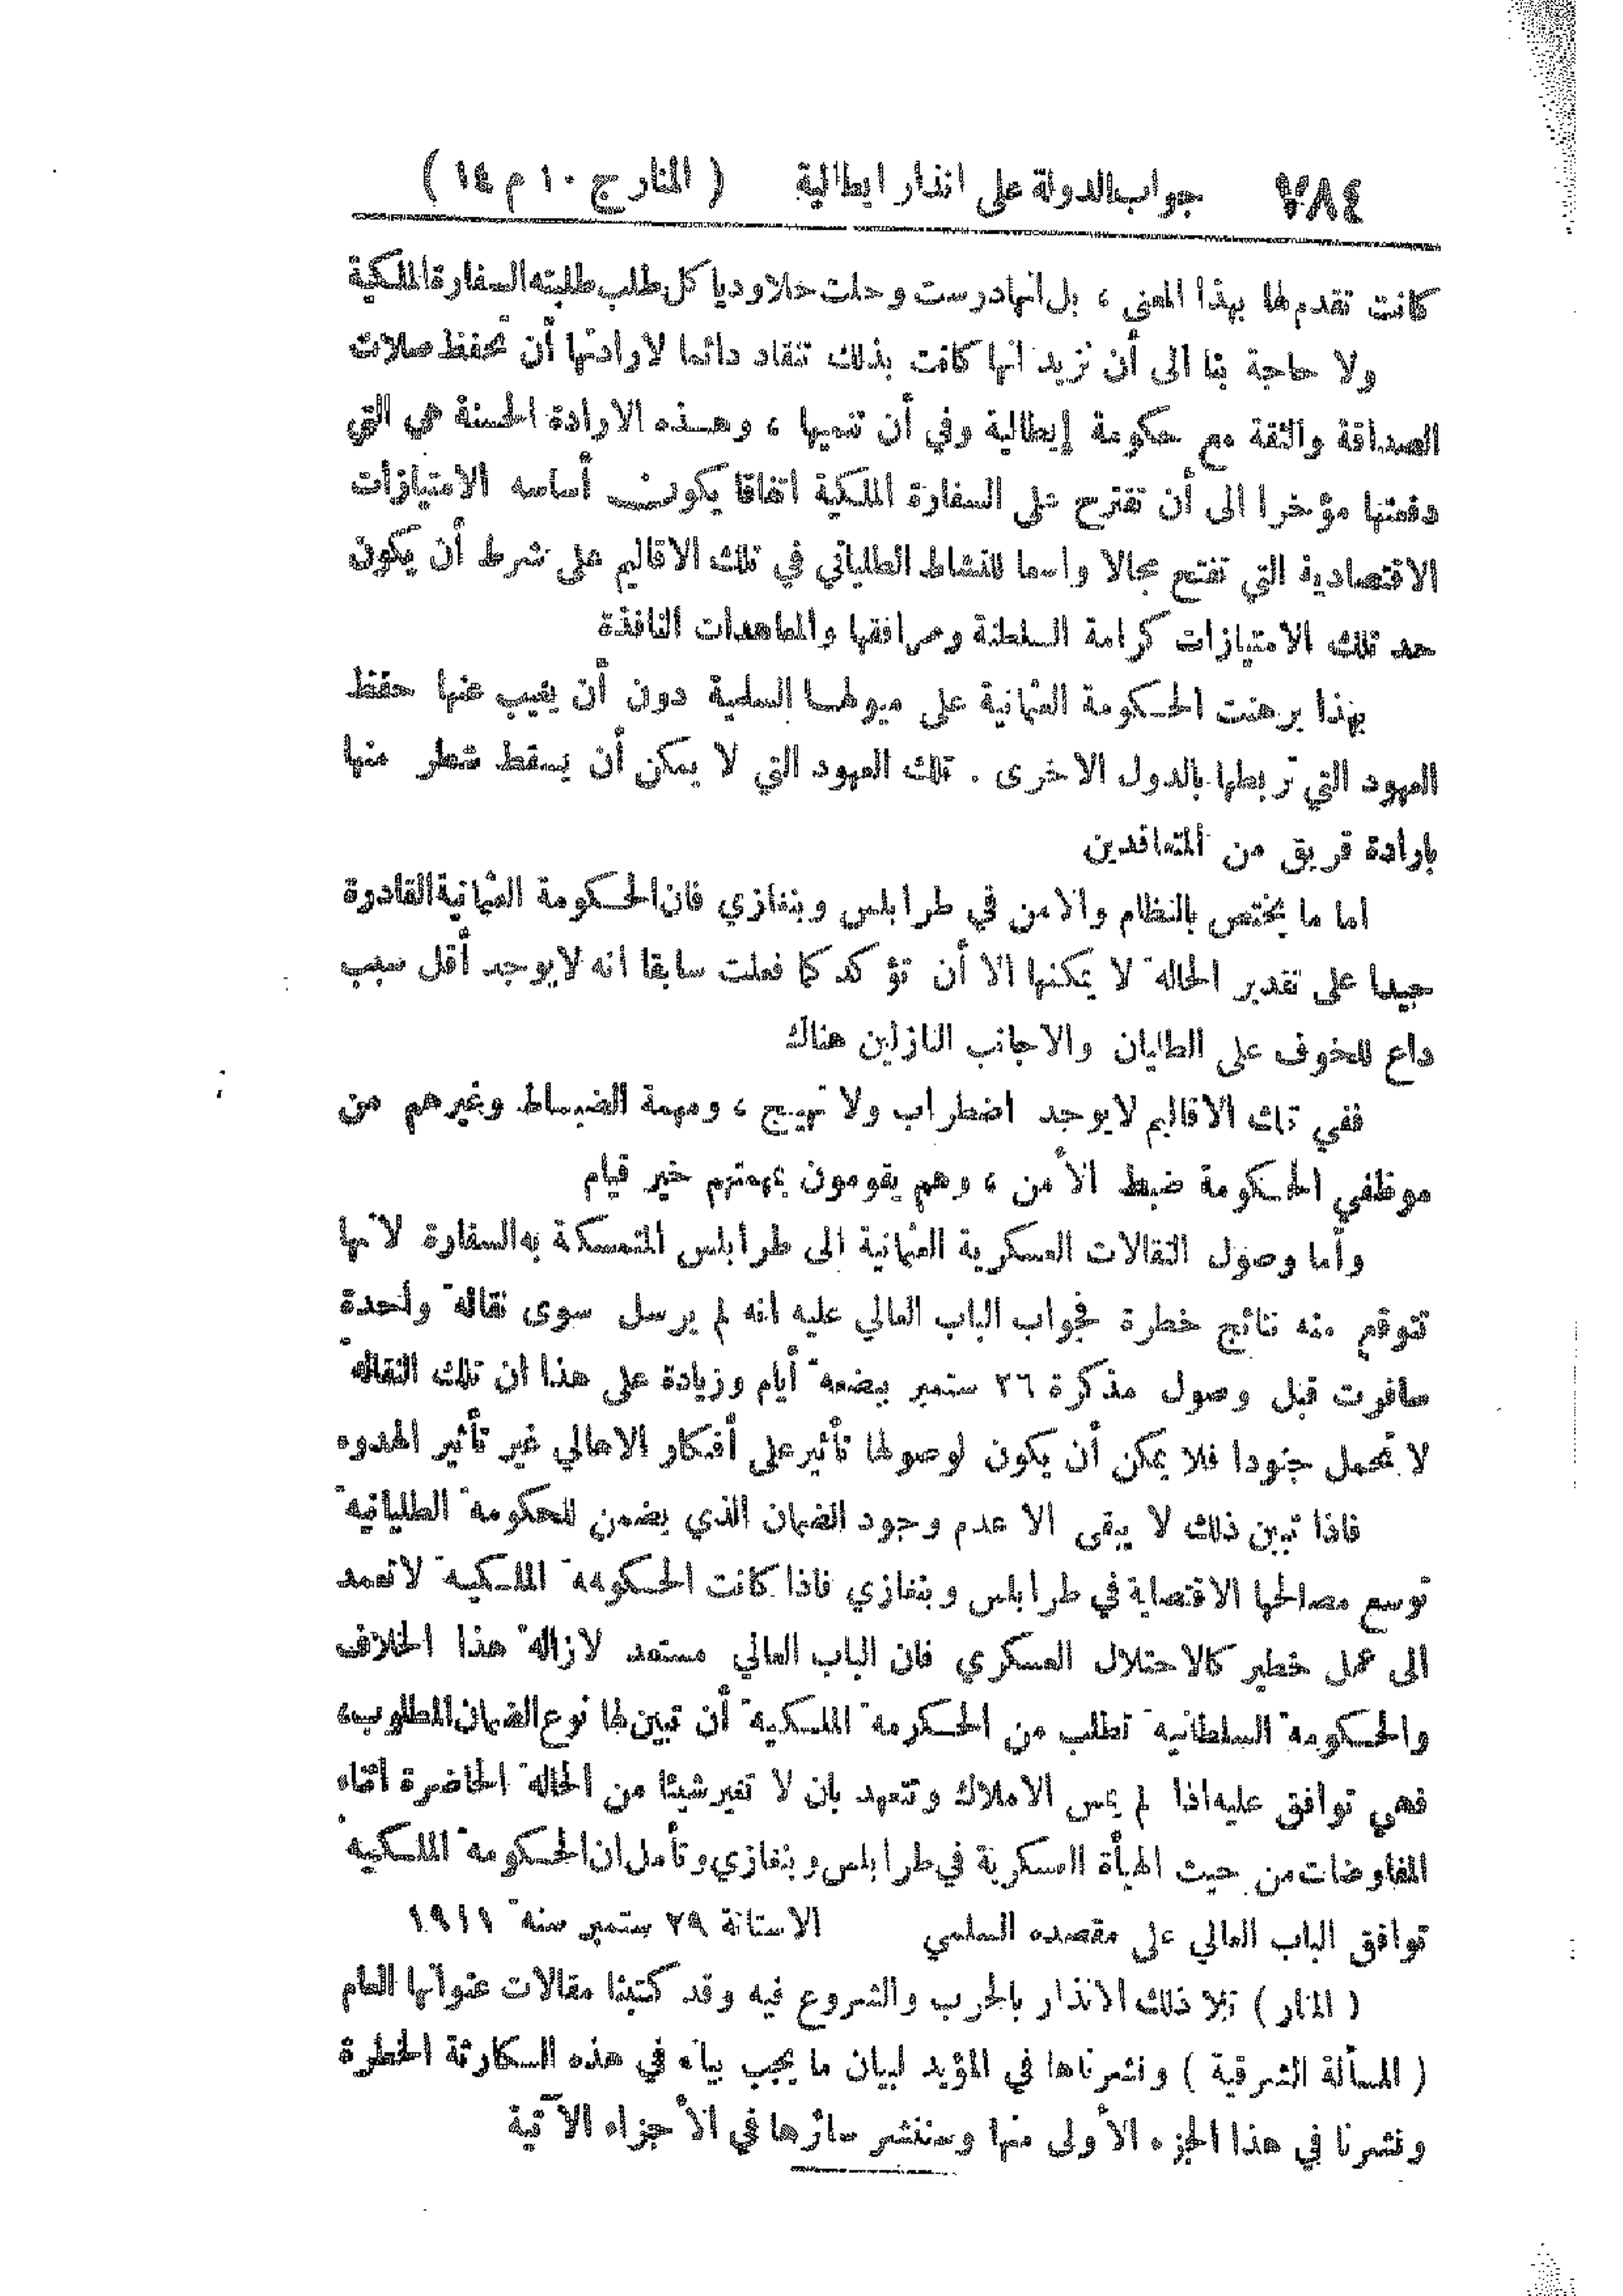 ٧٨٤ جواب الدولة على انذار ايطالية ( المنار ج ١٠ م ١٤ )
كانت تقدم لها بهذا المعنى ، بل انها درست وحلت حلا وديا كل طلب طلبته السفارة الملكية
ولا حاجة بنا الى أن نزيد انها كانت بذلك تنقاد دائما لارادتها أن تحفظ صلات
الصداقة والثقة مع حكومة إيطالية وفي أن تنميها ، وهذه الارادة الحسنة هي التي
دفعتها مؤخرا الى أن تقترح على السفارة الملكية اتفاقا يكون أساسه الامتيازات
الاقتصادية التي تفتح مجالا واسعا للنشاط الطلياني في تلك الاقاليم على شرط أن يكون
حد تلك الامتيازات كرامة السلطنة ومرافقها والمعاهدات النافذة
بهذا برهنت الحكومة العثمانية على ميولها السلمية دون أن يغيب عنها حفظ
العهود التي تربطها بالدول الاخرى . تلك العهود التي لا يمكن أن يسقط شطر منها
بارادة فريق من المتعاقدين
اما ما يختص بالنظام والامن في طرابلس وبنغازي فان الحكومة العثمانية القادرة
جيدا على تقدير الحالة لا يمكنها الا أن تؤكد كما فعلت سابقا انه لا يوجد أقل سبب
داع للخوف على الطليان والاجانب النازلين هناك
ففي تلك الاقاليم لا يوجد اضطراب ولا تهييج ، ومهمة الضباط وغيرهم من
موظفي الحكومة ضبط الأمن ، وهم يقومون بمهمتهم خير قيام
وأما وصول النقالات العسكرية العثمانية إلى طرابلس المتمسكة به السفارة لأنها
تتوقع منه نتائج خطرة فجواب الباب العالي عليه انه لم يرسل سوى نقالة واحدة
سافرت قبل وصول مذكرة ٢٦ ستمبر ببضعة أيام وزيادة على هذا ان تلك النقالة
لا تحمل جنودا فلا يمكن أن يكون لوصولها تأثير على أفكار الاهالي غير تأثير الهدوء
فاذا تبين ذلك لا يبقى الا عدم وجود الضمان الذي يضمن للحكومة الطليانية
توسع مصالحها الاقتصاية في طرابلس وبنغازي فاذا كانت الحكومة الملكية لا تعمد
الى عمل خطير كالاحتلال العسكري فان الباب العالي مستعد لازالة هذا الخلاف
والحكومة السلطانية تطلب من الحكومة الملكية أن تبين لها نوع الضمان المطلوب ،
فهي توافق عليه اذا لم يمس الاملاك وتتعهد بان لا تغير شيئا من الحالة الحاضرة اثناء
المفاوضات من حيث الهيأة العسكرية في طرابلس وبنغازي وتأمل ان الحكومة الملكية
توافق الباب العالي على مقصده السلمي الاستانة ٢٩ ستمبر سنة ١٩١١
( المنار ) تلا ذلك الانذار بالحرب والشروع فيه وقد كتبنا مقالات عنوانها العام
( المسألة الشرقية ) ونشرناها في المؤيد لبيان ما يجب بيانه في هذه الكارثة الخطرة
ونشرنا في هذا الجزء الأولى منها وسننشر سائرها في الأجزاء الآتية